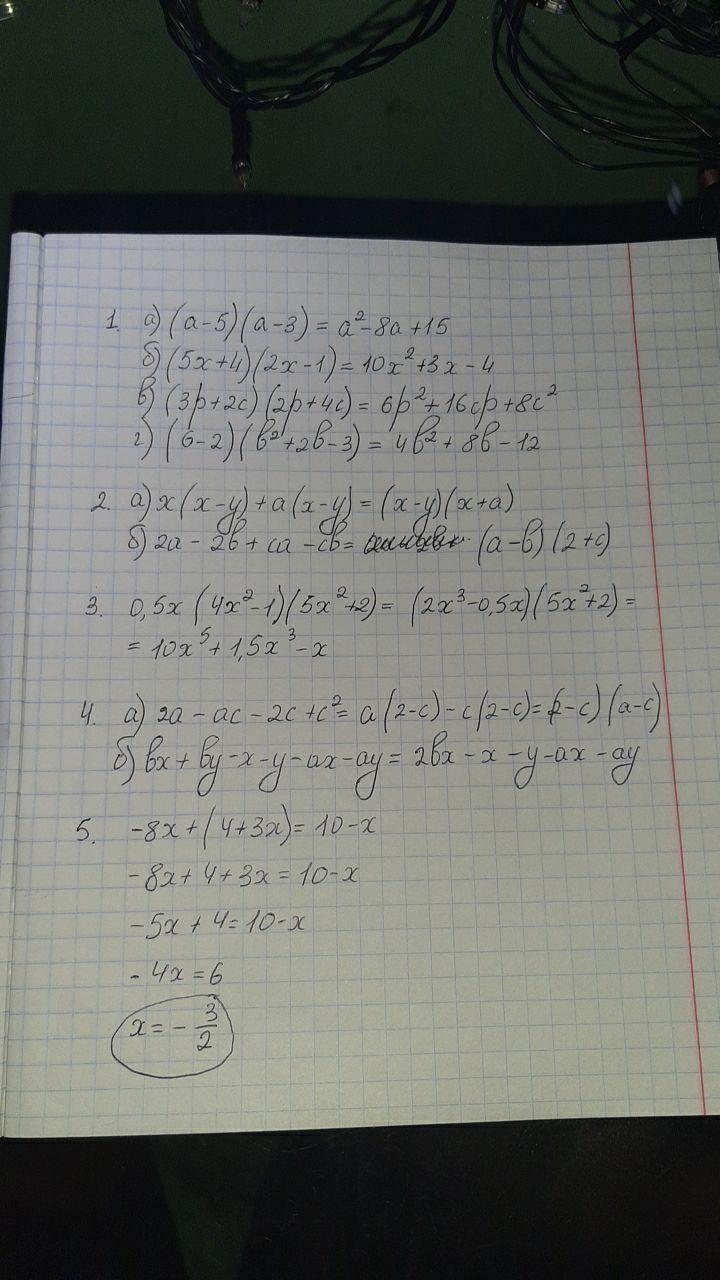 1. а) (a-5)(a-3) = a²-8a+15
б) (5x+4)(2x-1)=10x²+3x-4
в) (3p+2c)(2p+4c) = 6p²+16cp+8c²
г) (6-2)(b²+2b-3) = 4b²+8b-12
2. а) x(x-y)+a(x-y)=(x-y)(x+a)
б) 2a-2b+ca-cb= (a-b)(2+c)
3. 0,5x(4x²-1)(5x²+2)= (2x³-0,5x)(5x²+2)=
= 10x⁵+1,5x³-x
4. а) 2a-ac-2c+c²= a(2-c)-c(2-c)=(2-c)(a-c)
б) bx+by-x-y-ax-ay= 2bx-x-y-ax-ay
5. -8x+(4+3x)=10-x
-8x+4+3x=10-x
-5x+4=10-x
-4x=6
x=-3/2